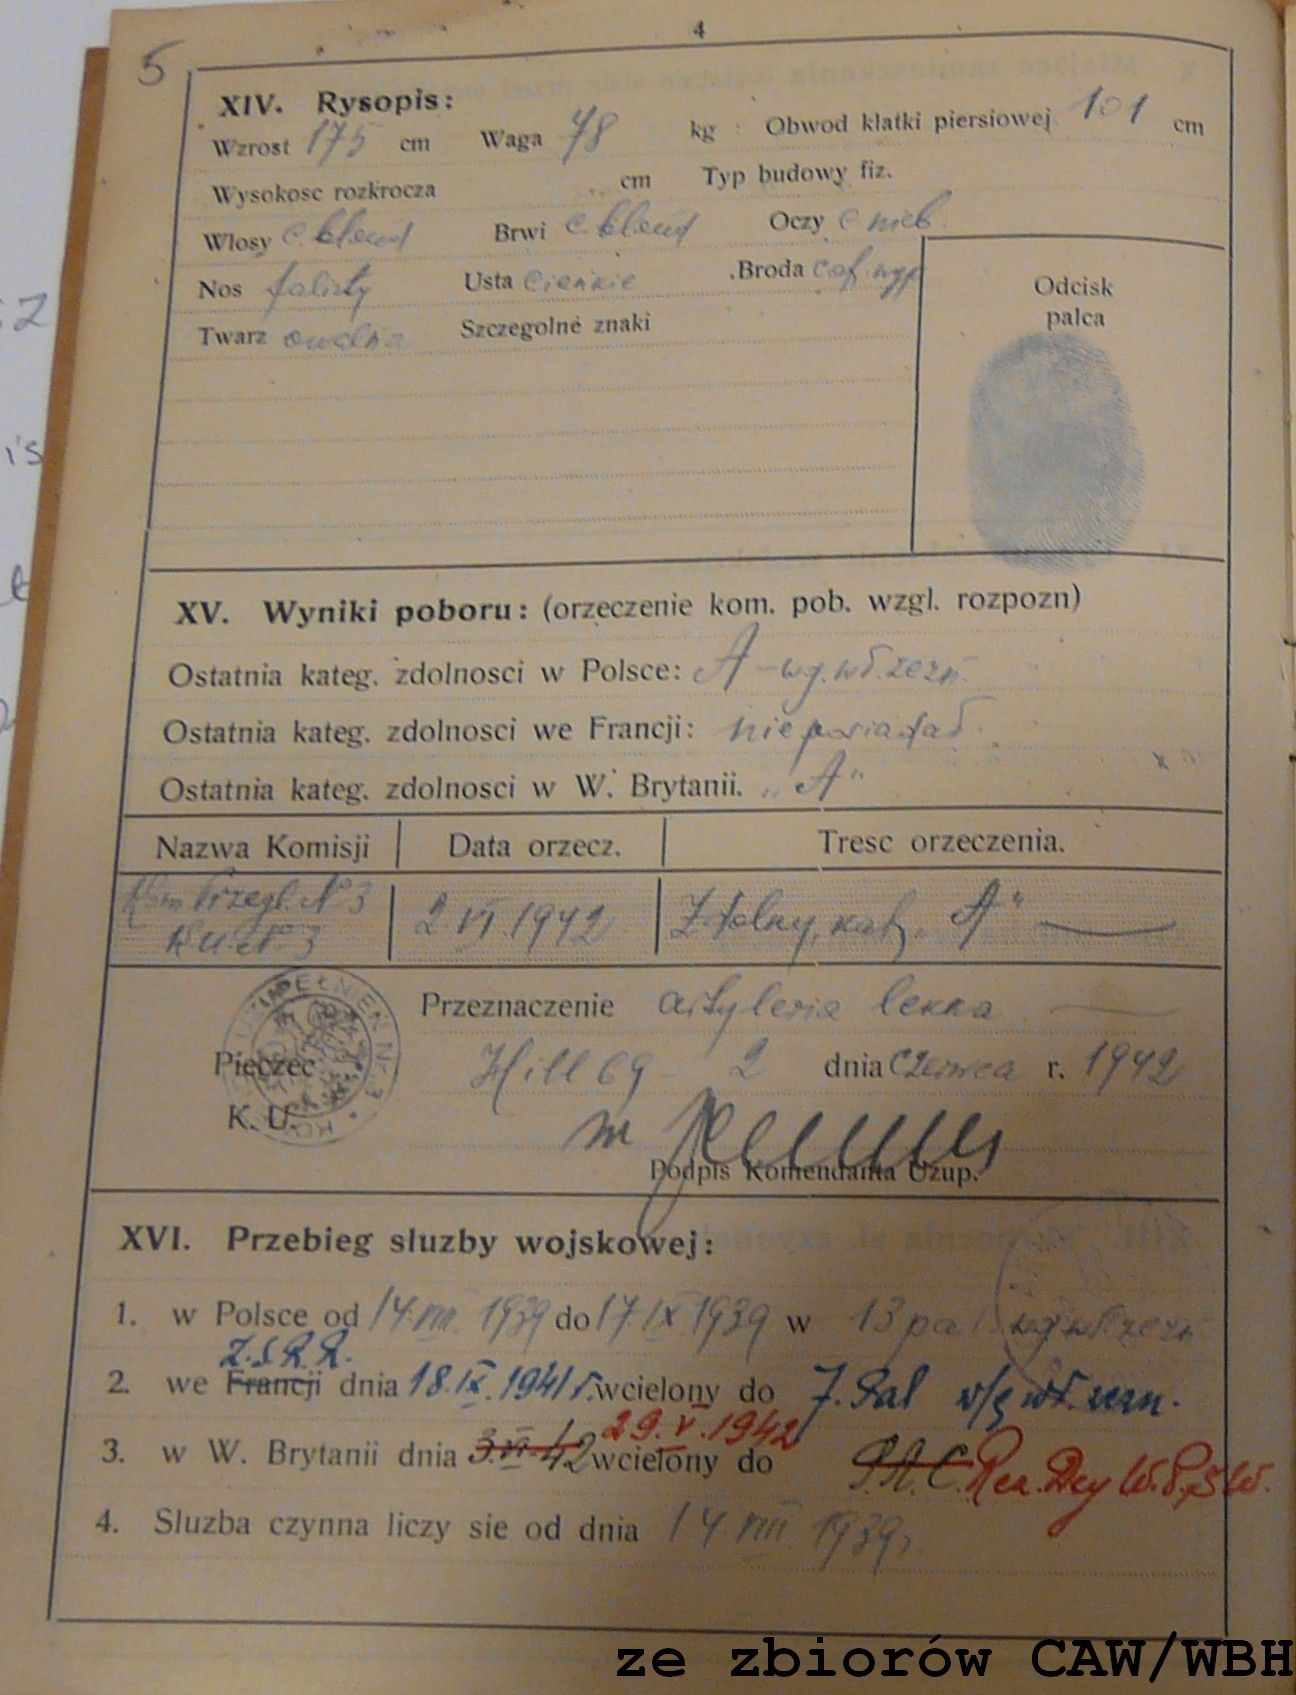 4
5
XIV. Rysopis:
Wzrost 175 cm Waga 78 kg Obwod klatki piersiowej 101 cm
Wysokosc rozkrocza cm Typ budowy fiz.
Wlosy c. blond Brwi c. blond Oczy c. nieb.
Nos falisty Usta cienkie Broda cof. wyp
Twarz owalna Szczegolne znaki
Odcisk
palca
XV. Wyniki poboru: (orzeczenie kom. pob. wzgl. rozpozn)
Ostatnia kateg. zdolnosci w Polsce: A - wg. wł. zezn.
Ostatnia kateg. zdolnosci we Francji: nie posiadał
Ostatnia kateg. zdolnosci w W. Brytanii. „A"
Nazwa Komisji Data orzecz. Tresc orzeczenia.
Kom Przegl. N 3 2.VI.1942 Zdolny, kat. „A"
K.U. N 3
Przeznaczenie artyleria lekka
UZUPEŁNIEŃ Nr. 3
Pieczec
K. U.
Hill 69 2 dnia czerwca r. 1942
Podpis Komendanta Uzup.
XVI. Przebieg sluzby wojskowej:
1. w Polsce od 14.VIII.1939 do 17.IX.1939 w 13 pal wg. wł. zezn.
Z.S.R.R.
2. we Francji dnia 18.IX.1941 r. wcielony do 7. Pal w/g wł. zezn.
29.V.1942
3. w W. Brytanii dnia 3.VI.42 wcielony do P.A.C. Rez. Dcy W.P.ŚW.
4. Sluzba czynna liczy sie od dnia 14.VIII.1939 r.
ze zbiorów CAW/WBH